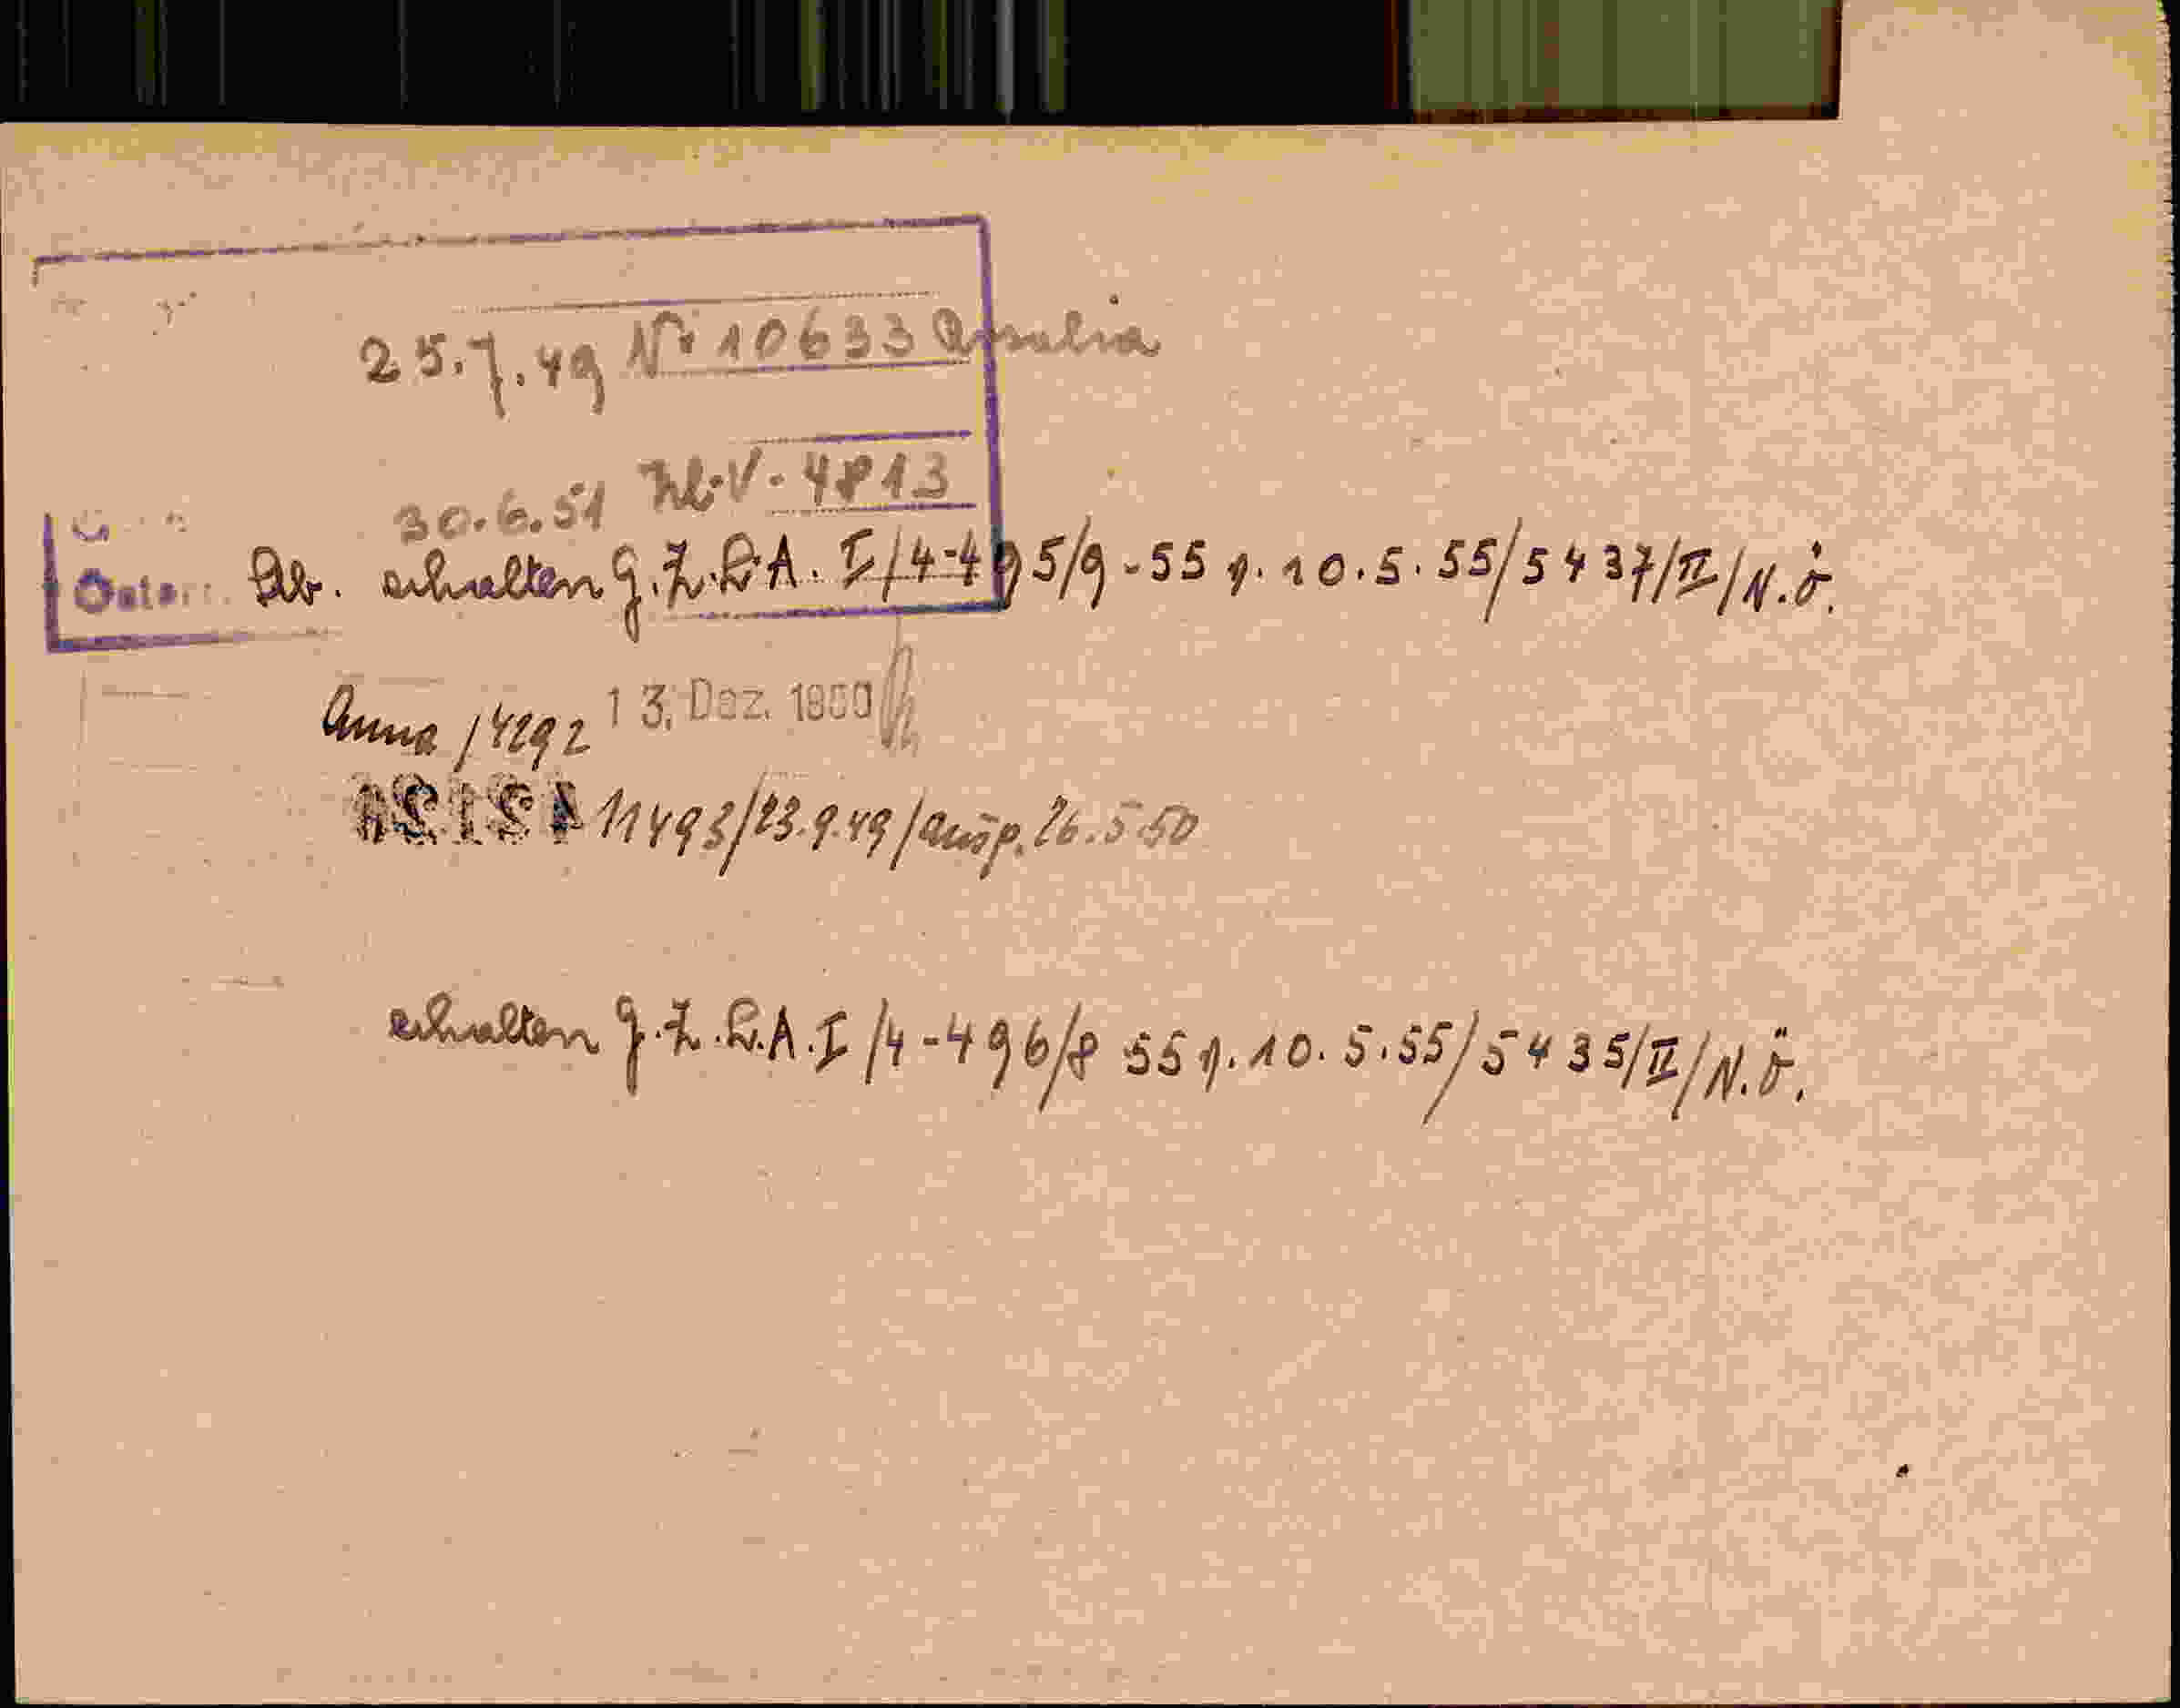 25.7.49 No 10633 Amalia
30.6.51 Zl. V. 4813
Ab. erhalten G.Z.L.A. I/4-495/9-55 v. 10.5.55/5437/II/N.Ö.
Anna /4292 13. Dez. 1950
11493/23.9.49/ausg. 26.5.50
erhalten G.Z.L.A. I/4-496/8 55 v. 10.5.55/5435/II/N.Ö.